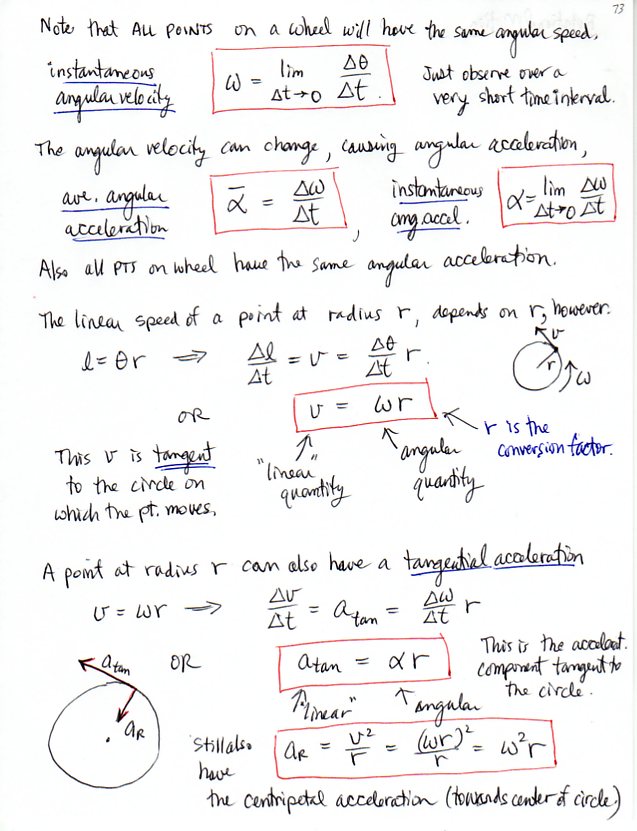 73
Note that ALL POINTS on a wheel will have the same angular speed.
instantaneous angular velocity
ω = lim Δt→0 Δθ/Δt
Just observe over a very short time interval.
The angular velocity can change, causing angular acceleration,
ave. angular acceleration
ᾱ = Δω/Δt ,
instantaneous ang. accel.
α = lim Δt→0 Δω/Δt
Also all PTS on wheel have the same angular acceleration.
The linear speed of a point at radius r, depends on r, however.
l = θr ⇒ Δl/Δt = v = Δθ/Δt r.
v
r
ω
OR
v = ωr
r is the conversion factor.
"linear" quantity
angular quantity
This v is tangent
to the circle on
which the pt. moves.
A point at radius r can also have a tangential acceleration
v = ωr ⇒ Δv/Δt = a tan = Δω/Δt r
OR
a tan = αr
This is the accelerat.
component tangent to
the circle.
"linear"
angular
a tan
a R
Still also
have
a R = v²/r = (ωr)²/r = ω²r
the centripetal acceleration (towards center of circle)